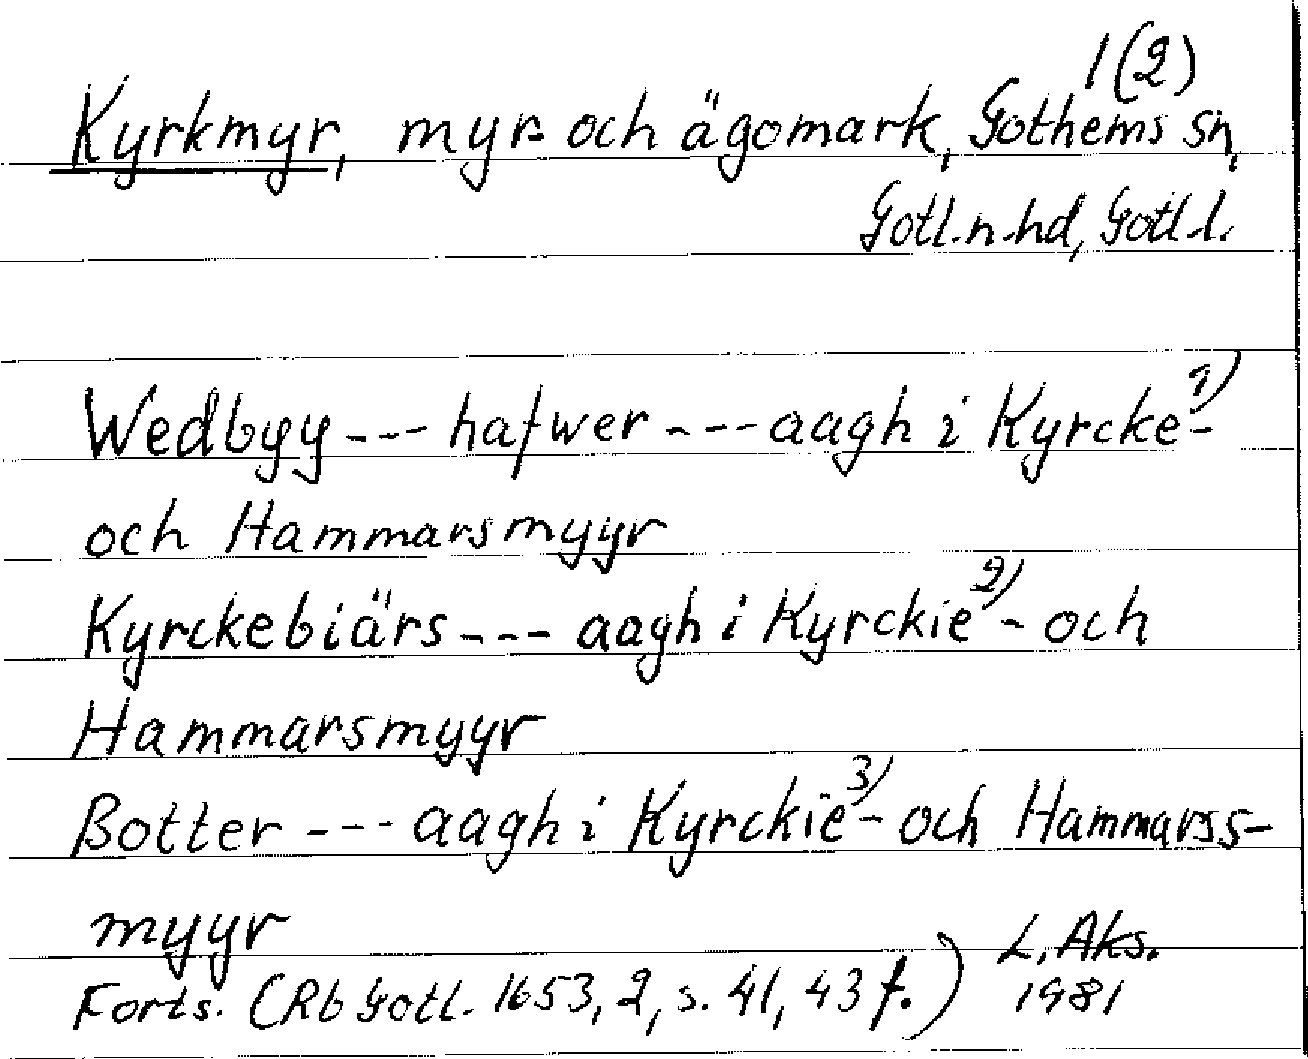 1(2)
Kyrkmyr, myr och ägomark, Gothems sn,
Gotl. n. hd, Gotl. l.
Wedbyy --- hafwer --- aagh i Kyrcke-1)
och Hammarsmyyr
Kyrckebiärs --- aagh i Kyrckie2)- och
Hammarsmyyr
Botter --- aagh i Kyrckie3)- och Hammarss-
myyr
Forts. (Rb Gotl. 1653, 2, s. 41, 43 f.) L. Aks.
1981